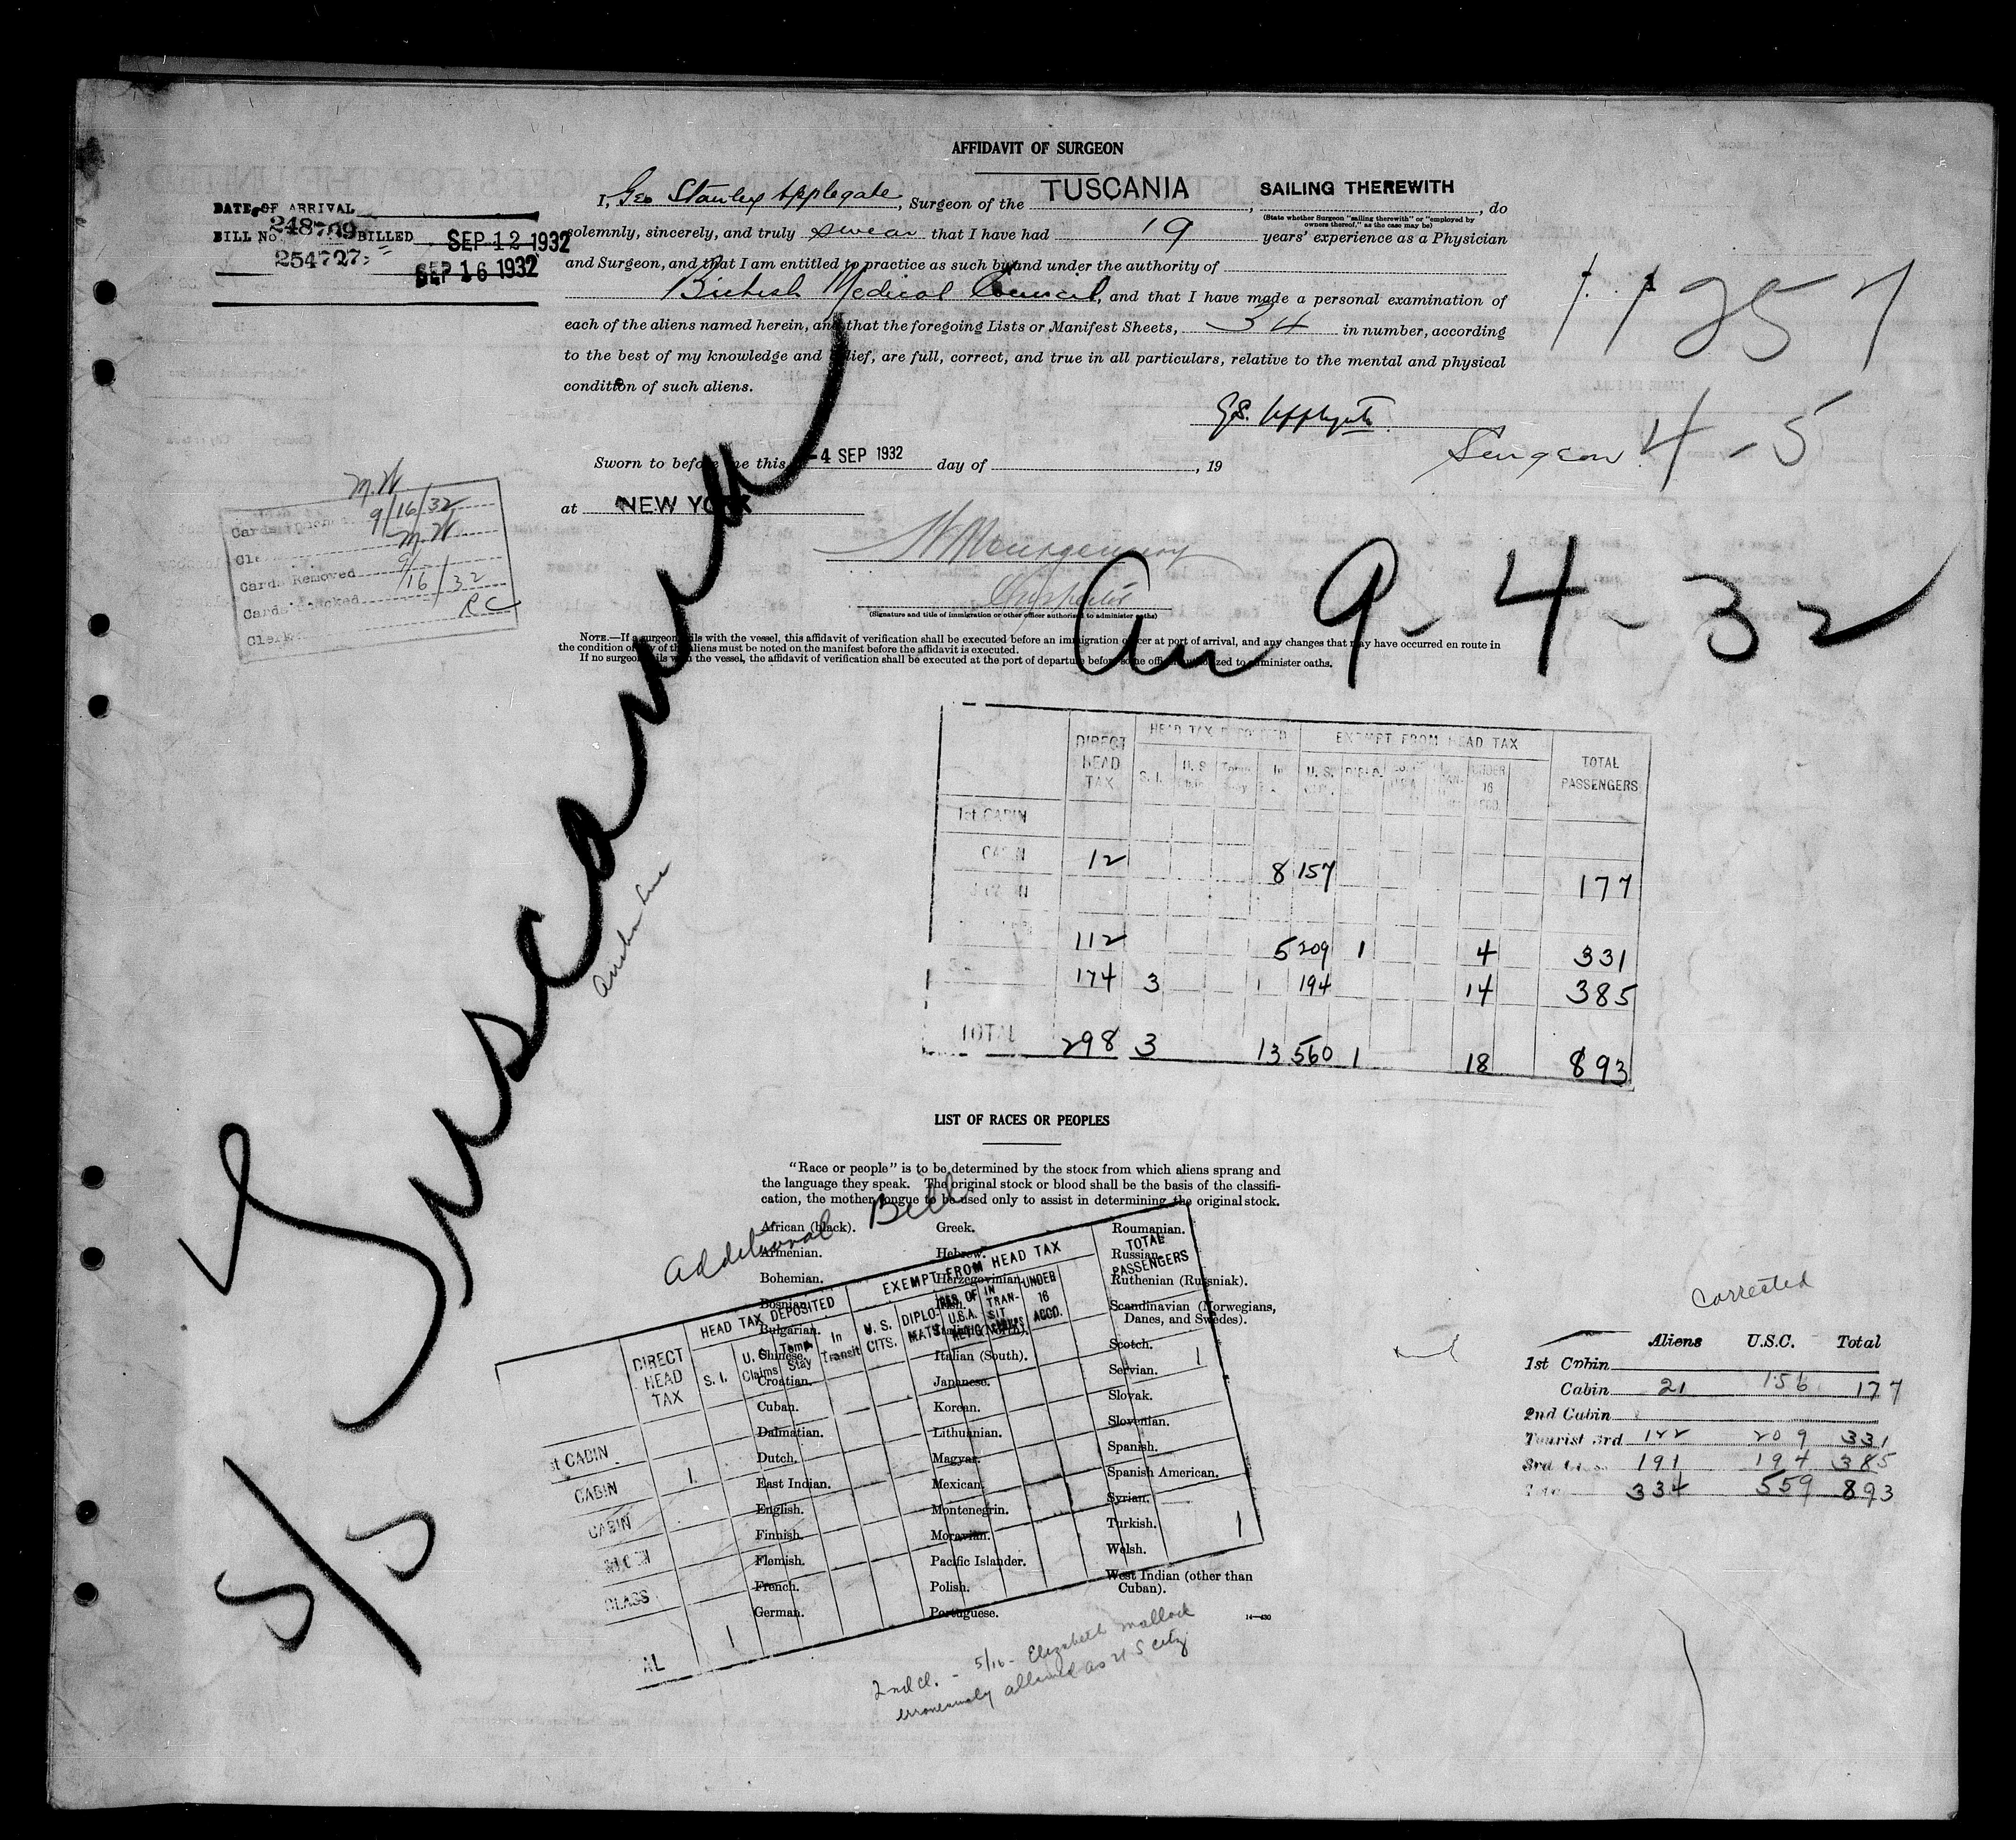 AFFIDAVIT OF SURGEON
I, Geo Stanley Applegate, Surgeon of the TUSCANIA, SAILING THEREWITH, do
(State whether Surgeon "sailing therewith" or "employed by
owners thereof," as the case may be)
solemnly, sincerely, and truly swear that I have had 19 years' experience as a Physician
and Surgeon, and that I am entitled to practice as such by and under the authority of
British Medical Council, and that I have made a personal examination of
each of the aliens named herein, and that the foregoing Lists or Manifest Sheets, 34 in number, according
to the best of my knowledge and belief, are full, correct, and true in all particulars, relative to the mental and physical
condition of such aliens.
G.S. Applegate
Surgeon
Sworn to before me this -4 SEP 1932 day of , 19
at NEW YORK
(Signature and title of immigration or other officer authorized to administer oaths)
NOTE.—If a surgeon sails with the vessel, this affidavit of verification shall be executed before an immigration officer at port of arrival, and any changes that may have occurred en route in
the condition of any of the aliens must be noted on the manifest before the affidavit is executed.
If no surgeon sails with the vessel, the affidavit of verification shall be executed at the port of departure before some officer authorized to administer oaths.
DATE OF ARRIVAL
BILL No. 248799 BILLED SEP 12 1932
254727 SEP 16 1932
4-5
M.W
9/16/32
M.W
Cards Removed 9/16/32
Cards Checked
Clerk RC
9-4-32
S/S Tuscania
DIRECT HEAD TAX
EXEMPT FROM HEAD TAX
TOTAL PASSENGERS
1st CABIN
CABIN 12 8 157 177
112 5 209 1 4 331
174 3 1 194 14 385
TOTAL 298 3 13 560 1 18 893
LIST OF RACES OR PEOPLES
"Race or people" is to be determined by the stock from which aliens sprang and
the language they speak. The original stock or blood shall be the basis of the classifi-
cation, the mother tongue to be used only to assist in determining the original stock.
African (black).
Armenian.
Bohemian.
Bosnian.
Bulgarian.
Chinese.
Croatian.
Cuban.
Dalmatian.
Dutch.
East Indian.
English.
Finnish.
Flemish.
French.
German.
Greek.
Hebrew.
Herzegovinian.
Irish.
Italian (North).
Italian (South).
Japanese.
Korean.
Lithuanian.
Magyar.
Mexican.
Montenegrin.
Moravian.
Pacific Islander.
Polish.
Portuguese.
Roumanian.
Russian.
Ruthenian (Russniak).
Scandinavian (Norwegians,
Danes, and Swedes).
Scotch.
Servian.
Slovak.
Slovenian.
Spanish.
Spanish American.
Syrian.
Turkish.
Welsh.
West Indian (other than
Cuban).
14—430
Additional Bill
DIRECT HEAD TAX
HEAD TAX DEPOSITED
S. I.
U. S. Claims
Temp. Stay
In Transit
EXEMPT FROM HEAD TAX
U. S. CITS.
DIPLO-MATS
UNDER 16 ACCD.
TOTAL PASSENGERS
st CABIN
CABIN 1 1
CABIN
CLASS
AL 1 1
2nd cl. - 5/16 - Elizabeth Mallock
erroneously allowed as U S City
Corrected
Aliens U.S.C. Total
1st Cabin
Cabin 21 156 177
2nd Cabin
Tourist 3rd 122 209 331
191 194 385
334 559 893